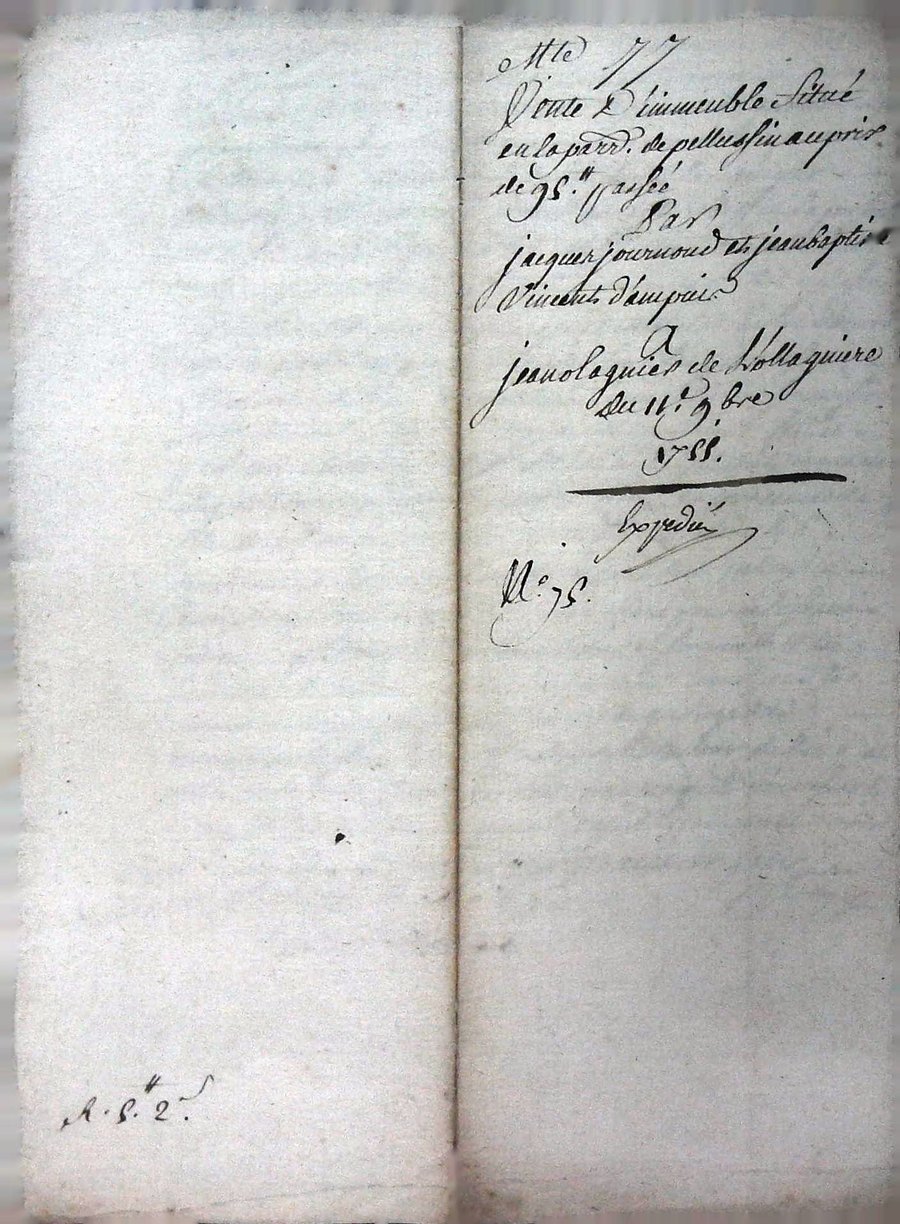 Mte 77
Vente d'immeuble Situé
en la parr. de pellussin au prix
de 95.# passée
Par
jacques journoud et jean baptiste
Vincent d'ampuis
A
jean olagnier de L'ollagniere
du 11.e 9bre
1755.
Expedié
No. 75.
R. 5.# 2s.